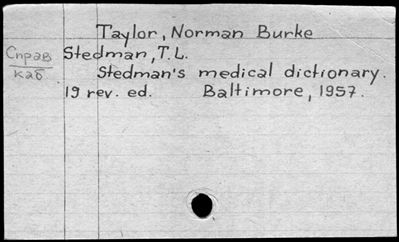 Taylor, Norman Burke
Справ Stedman, T.L.
каб Stedman's medical dictionary.
19 rev. ed. Baltimore, 1957.